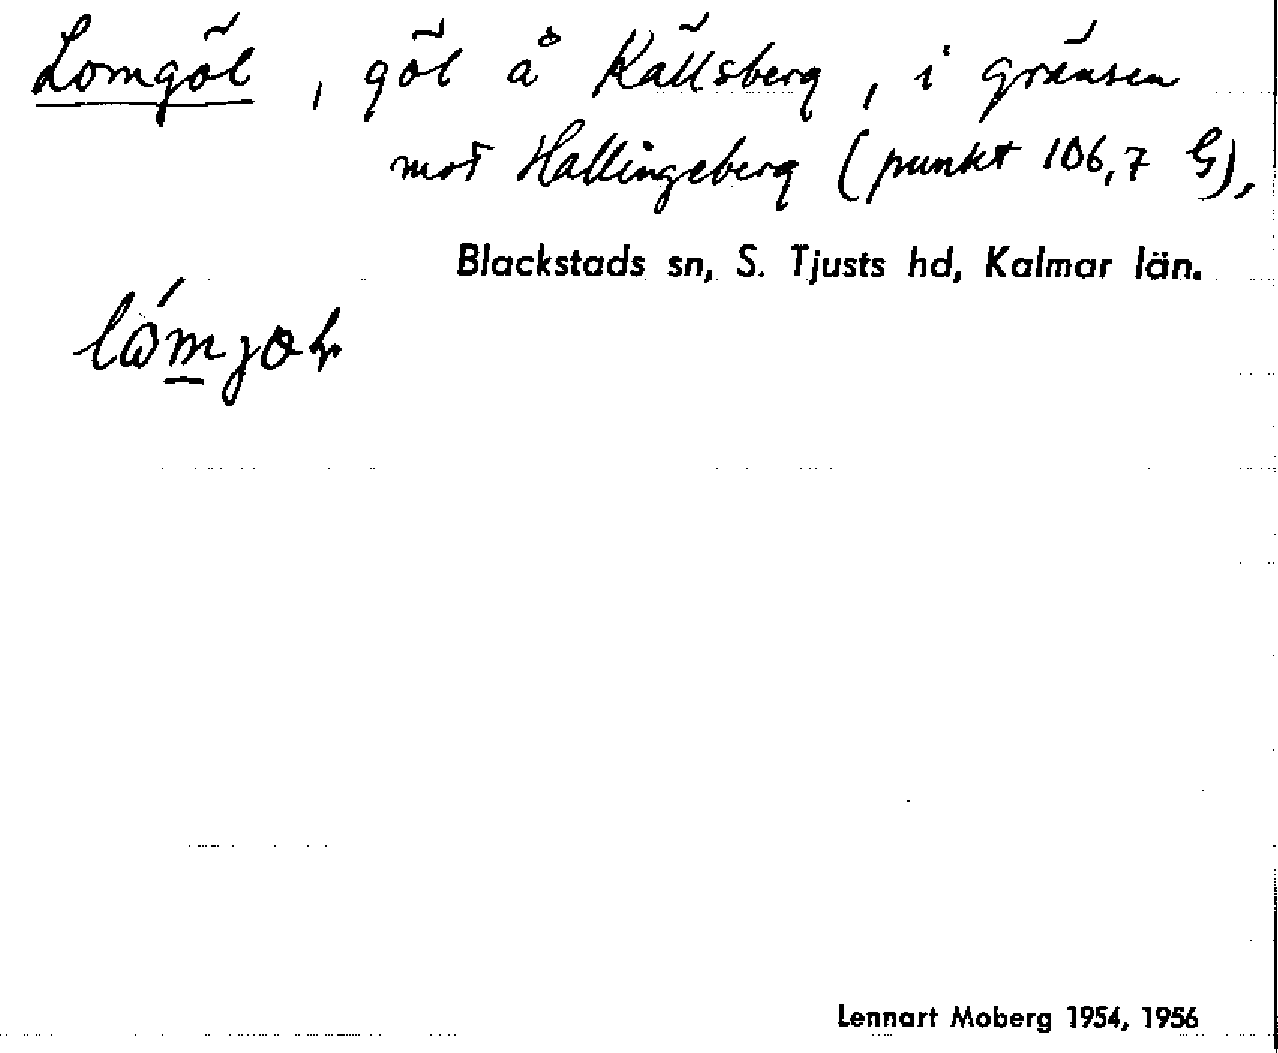 Lomgöl, göl å Källsberg, i gränsen
mot Hallingeberg (punkt 106,7 G),
Blackstads sn, S. Tjusts hd, Kalmar län.
Lennart Moberg 1954, 1956